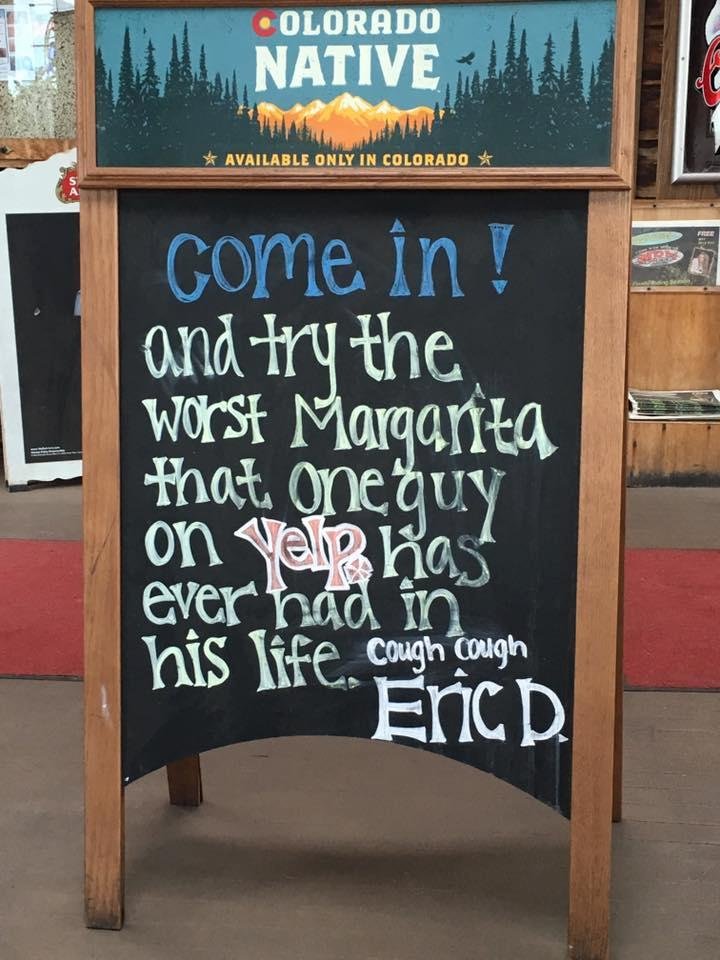 COLORADO
NATIVE
AVAILABLE ONLY IN COLORADO
Come in!
and try the
worst Margarita
that one guy
on Yelp has
ever had in
his life.
Cough Cough
Eric D.
FREE